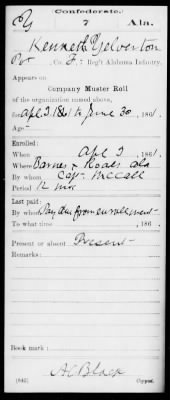 Confederate.
Y 7 Ala.
Kenneth Yelverton
Pvt, Co. F, 7 Reg't Alabama Infantry.
Appears on
Company Muster Roll
of the organization named above,
for Apl 3. 1861 to June 30, 1861.
Age
Enrolled:
When Apl 3, 1861.
Where Barnes X Roads Ala
By whom Capt. McCall
Period 12 mos
Last paid:
By whom Pay due from enrollment
To what time , 186 .
Present or absent Present
Remarks:
Book mark:
A C Black
(642) Copyist.